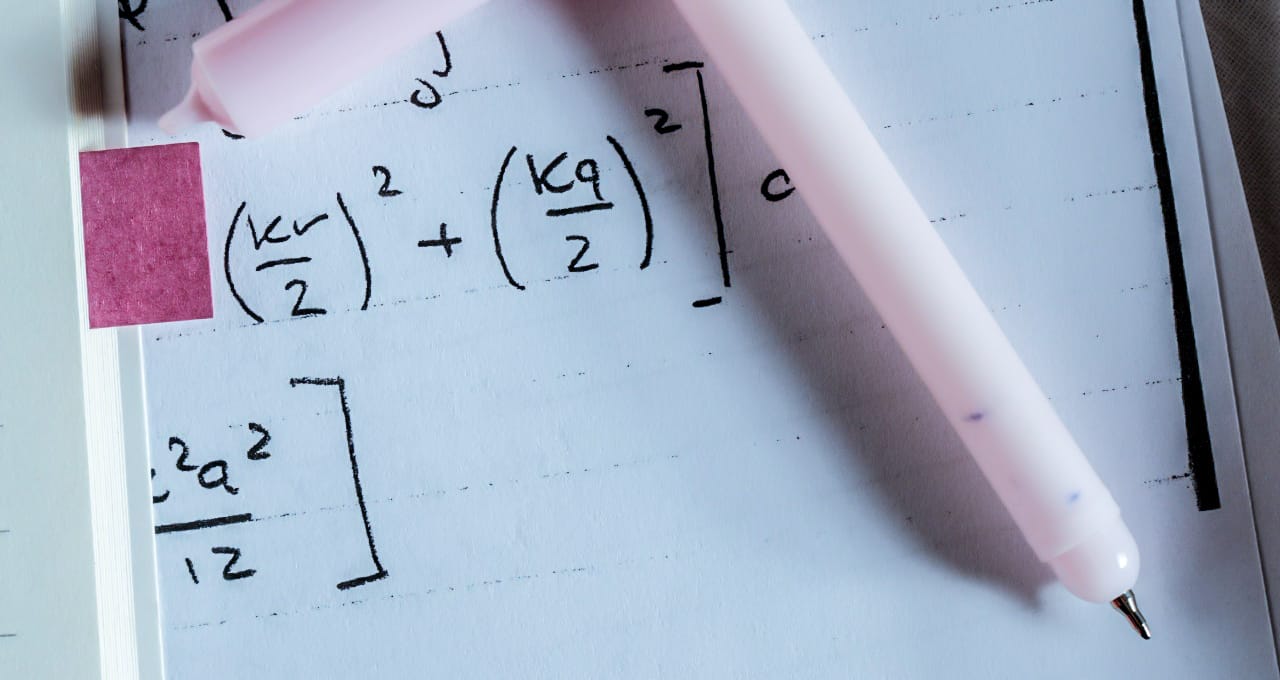 (kr/2)² + (kq/2)² ] c
²a² ]
12